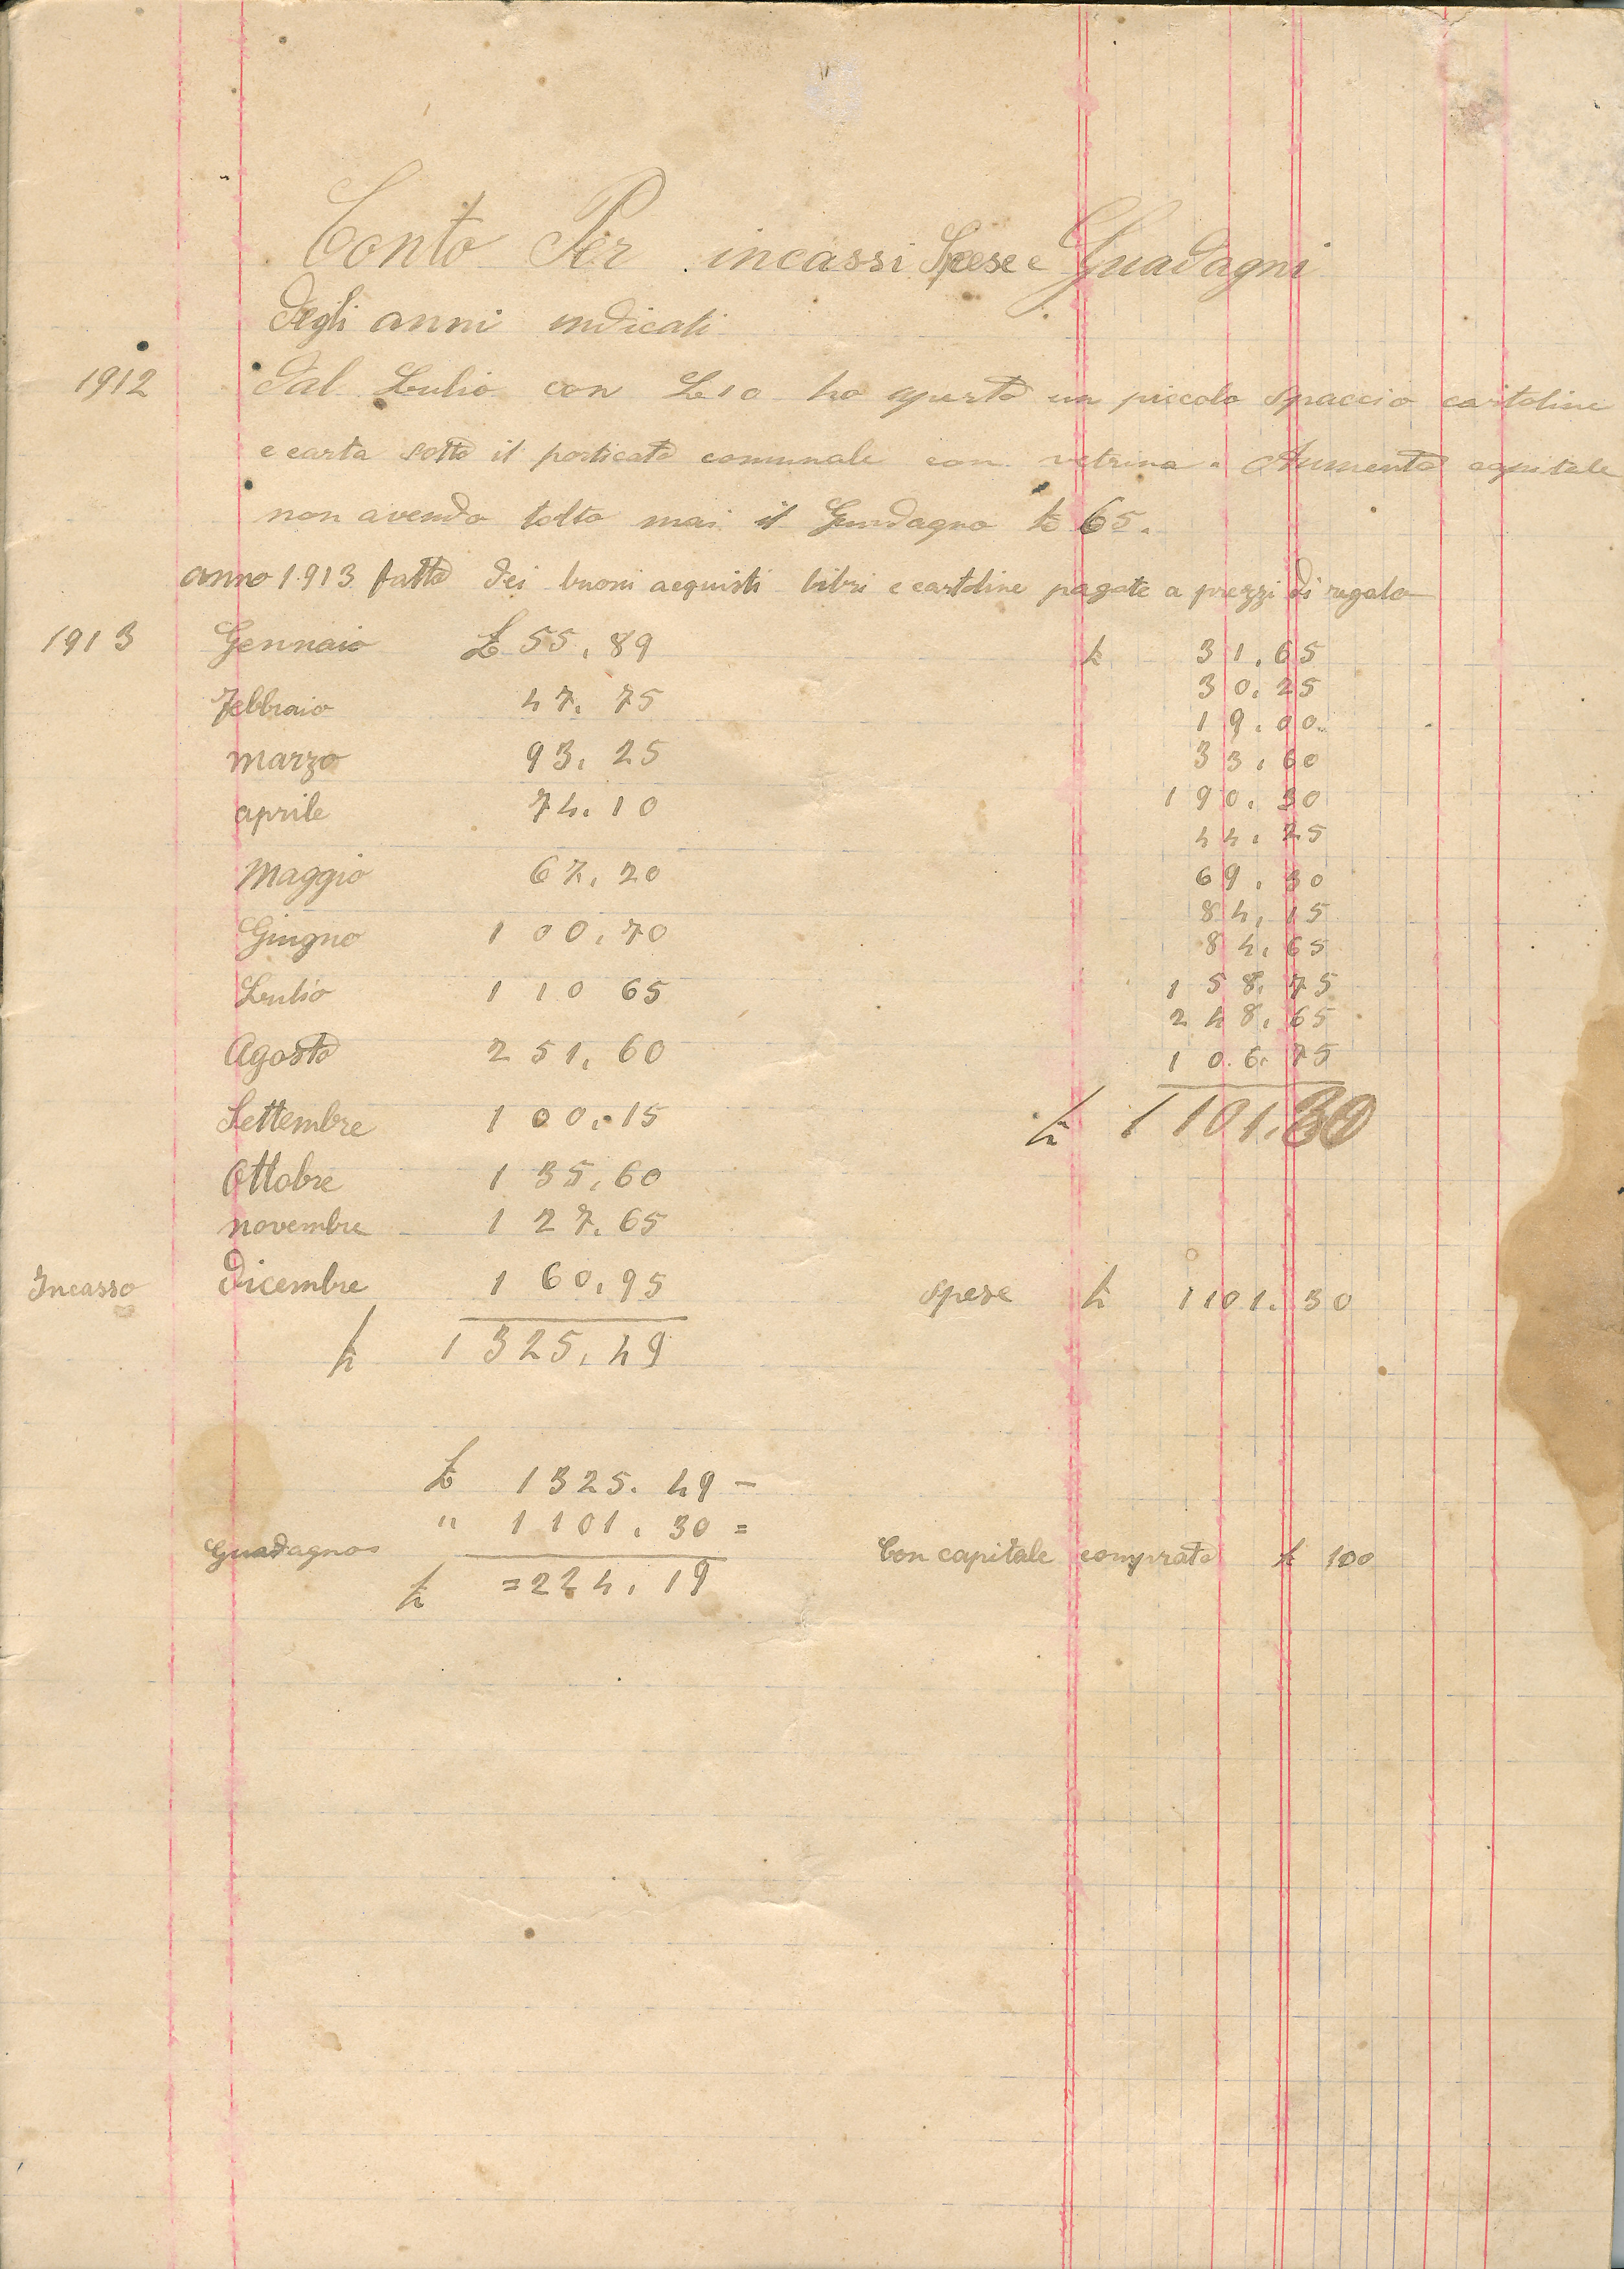 Conto Per incassi Spese e Guadagni
degli anni indicati
1912 dal Lulio con L 10 ho aperto un piccolo spaccio cartoline
e carta sotto il porticato comunale con vetrina. Aumento capitale
non avendo tolto mai il Guadagno L 65.
anno 1913 fatto dei buoni acquisti libri e cartoline pagate a prezzi di regalo
1913 Gennaio L 55,89 L 31,65
30,25
Febbraio 47,75
19,00.
marzo 93,25 33,60
aprile 74,10 190,30
44,25
Maggio 67,20 69,30
84,15
Giugno 100,70 84,65
Lulio 110 65 158,75
248,65
Agosto 251,60 106,75
Settembre 100,15 L 1101,30
Ottobre 135,60
novembre 127,65
Incasso dicembre 160,95 spese L 1101,30
L 1325,49
L 1325,49 -
" 1101,30 =
Guadagno Con capitale comprato L 100
L =224,19